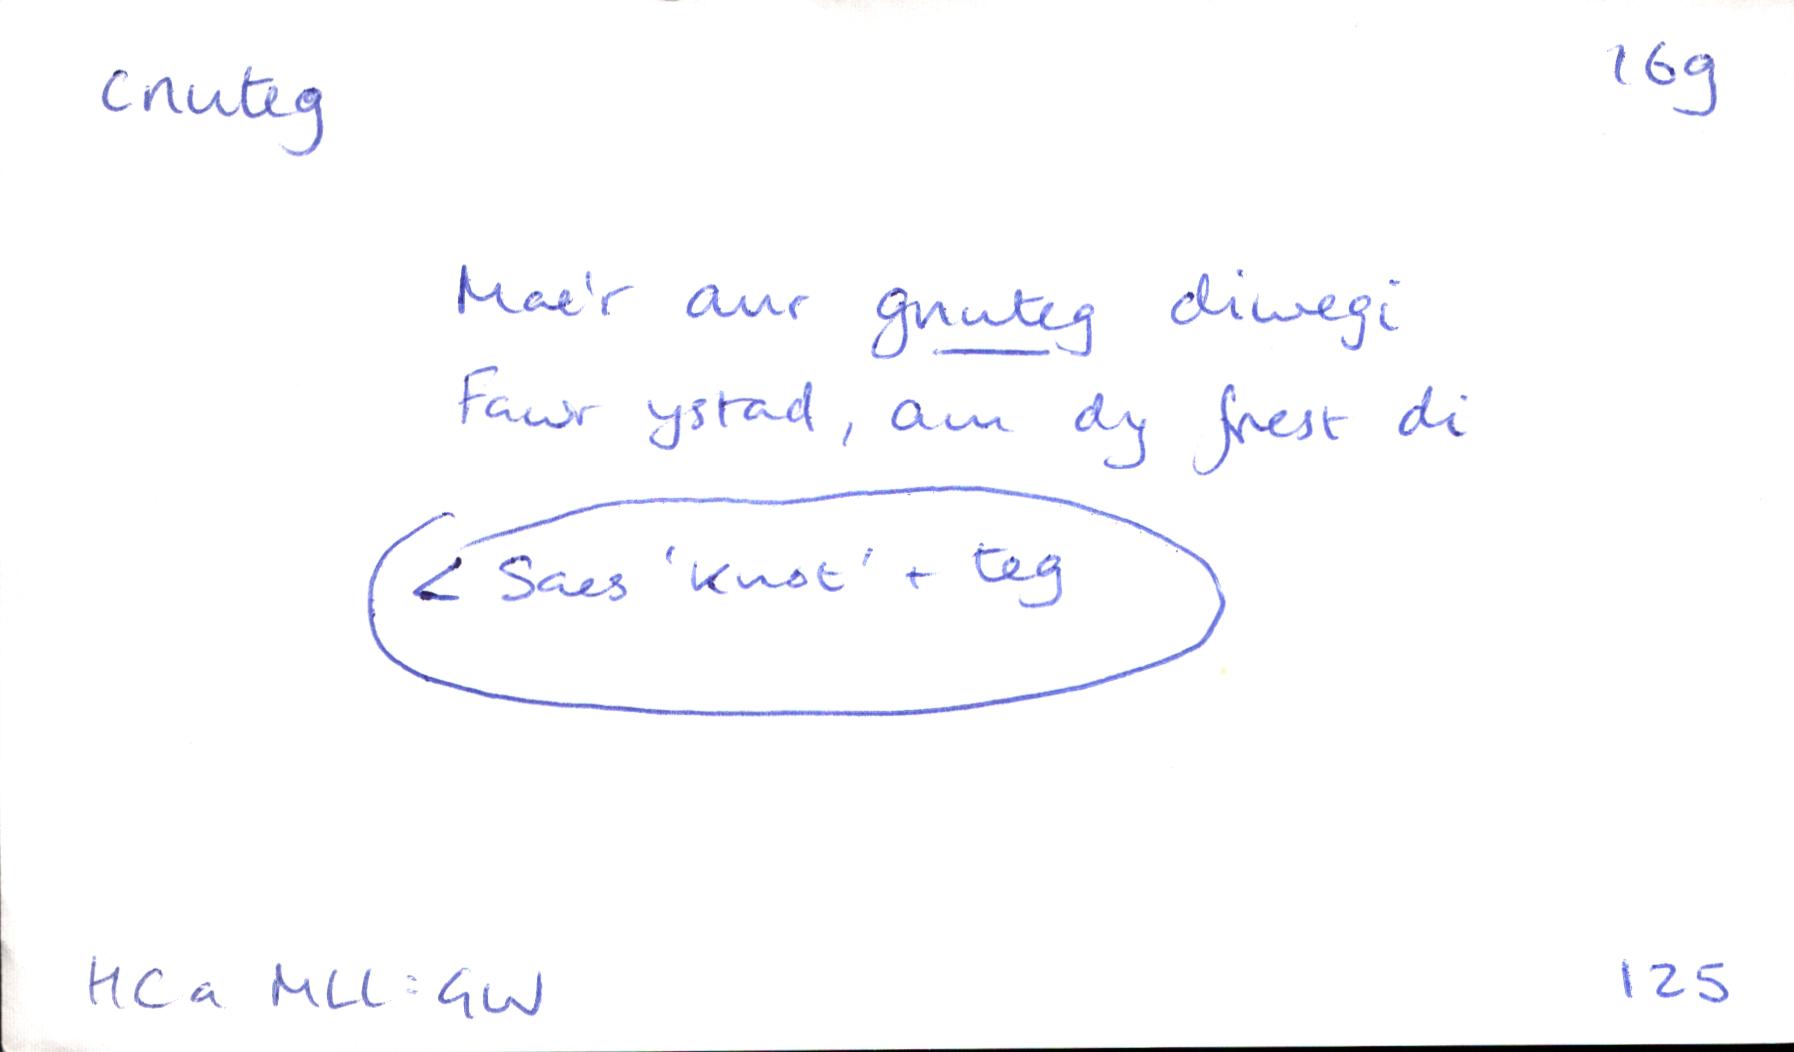 cnuteg 16g
Mae'r aur gnuteg diwegi
Fawr ystad, am dy frest di
< Saes 'knot' + teg
HCa MLl: GW 125